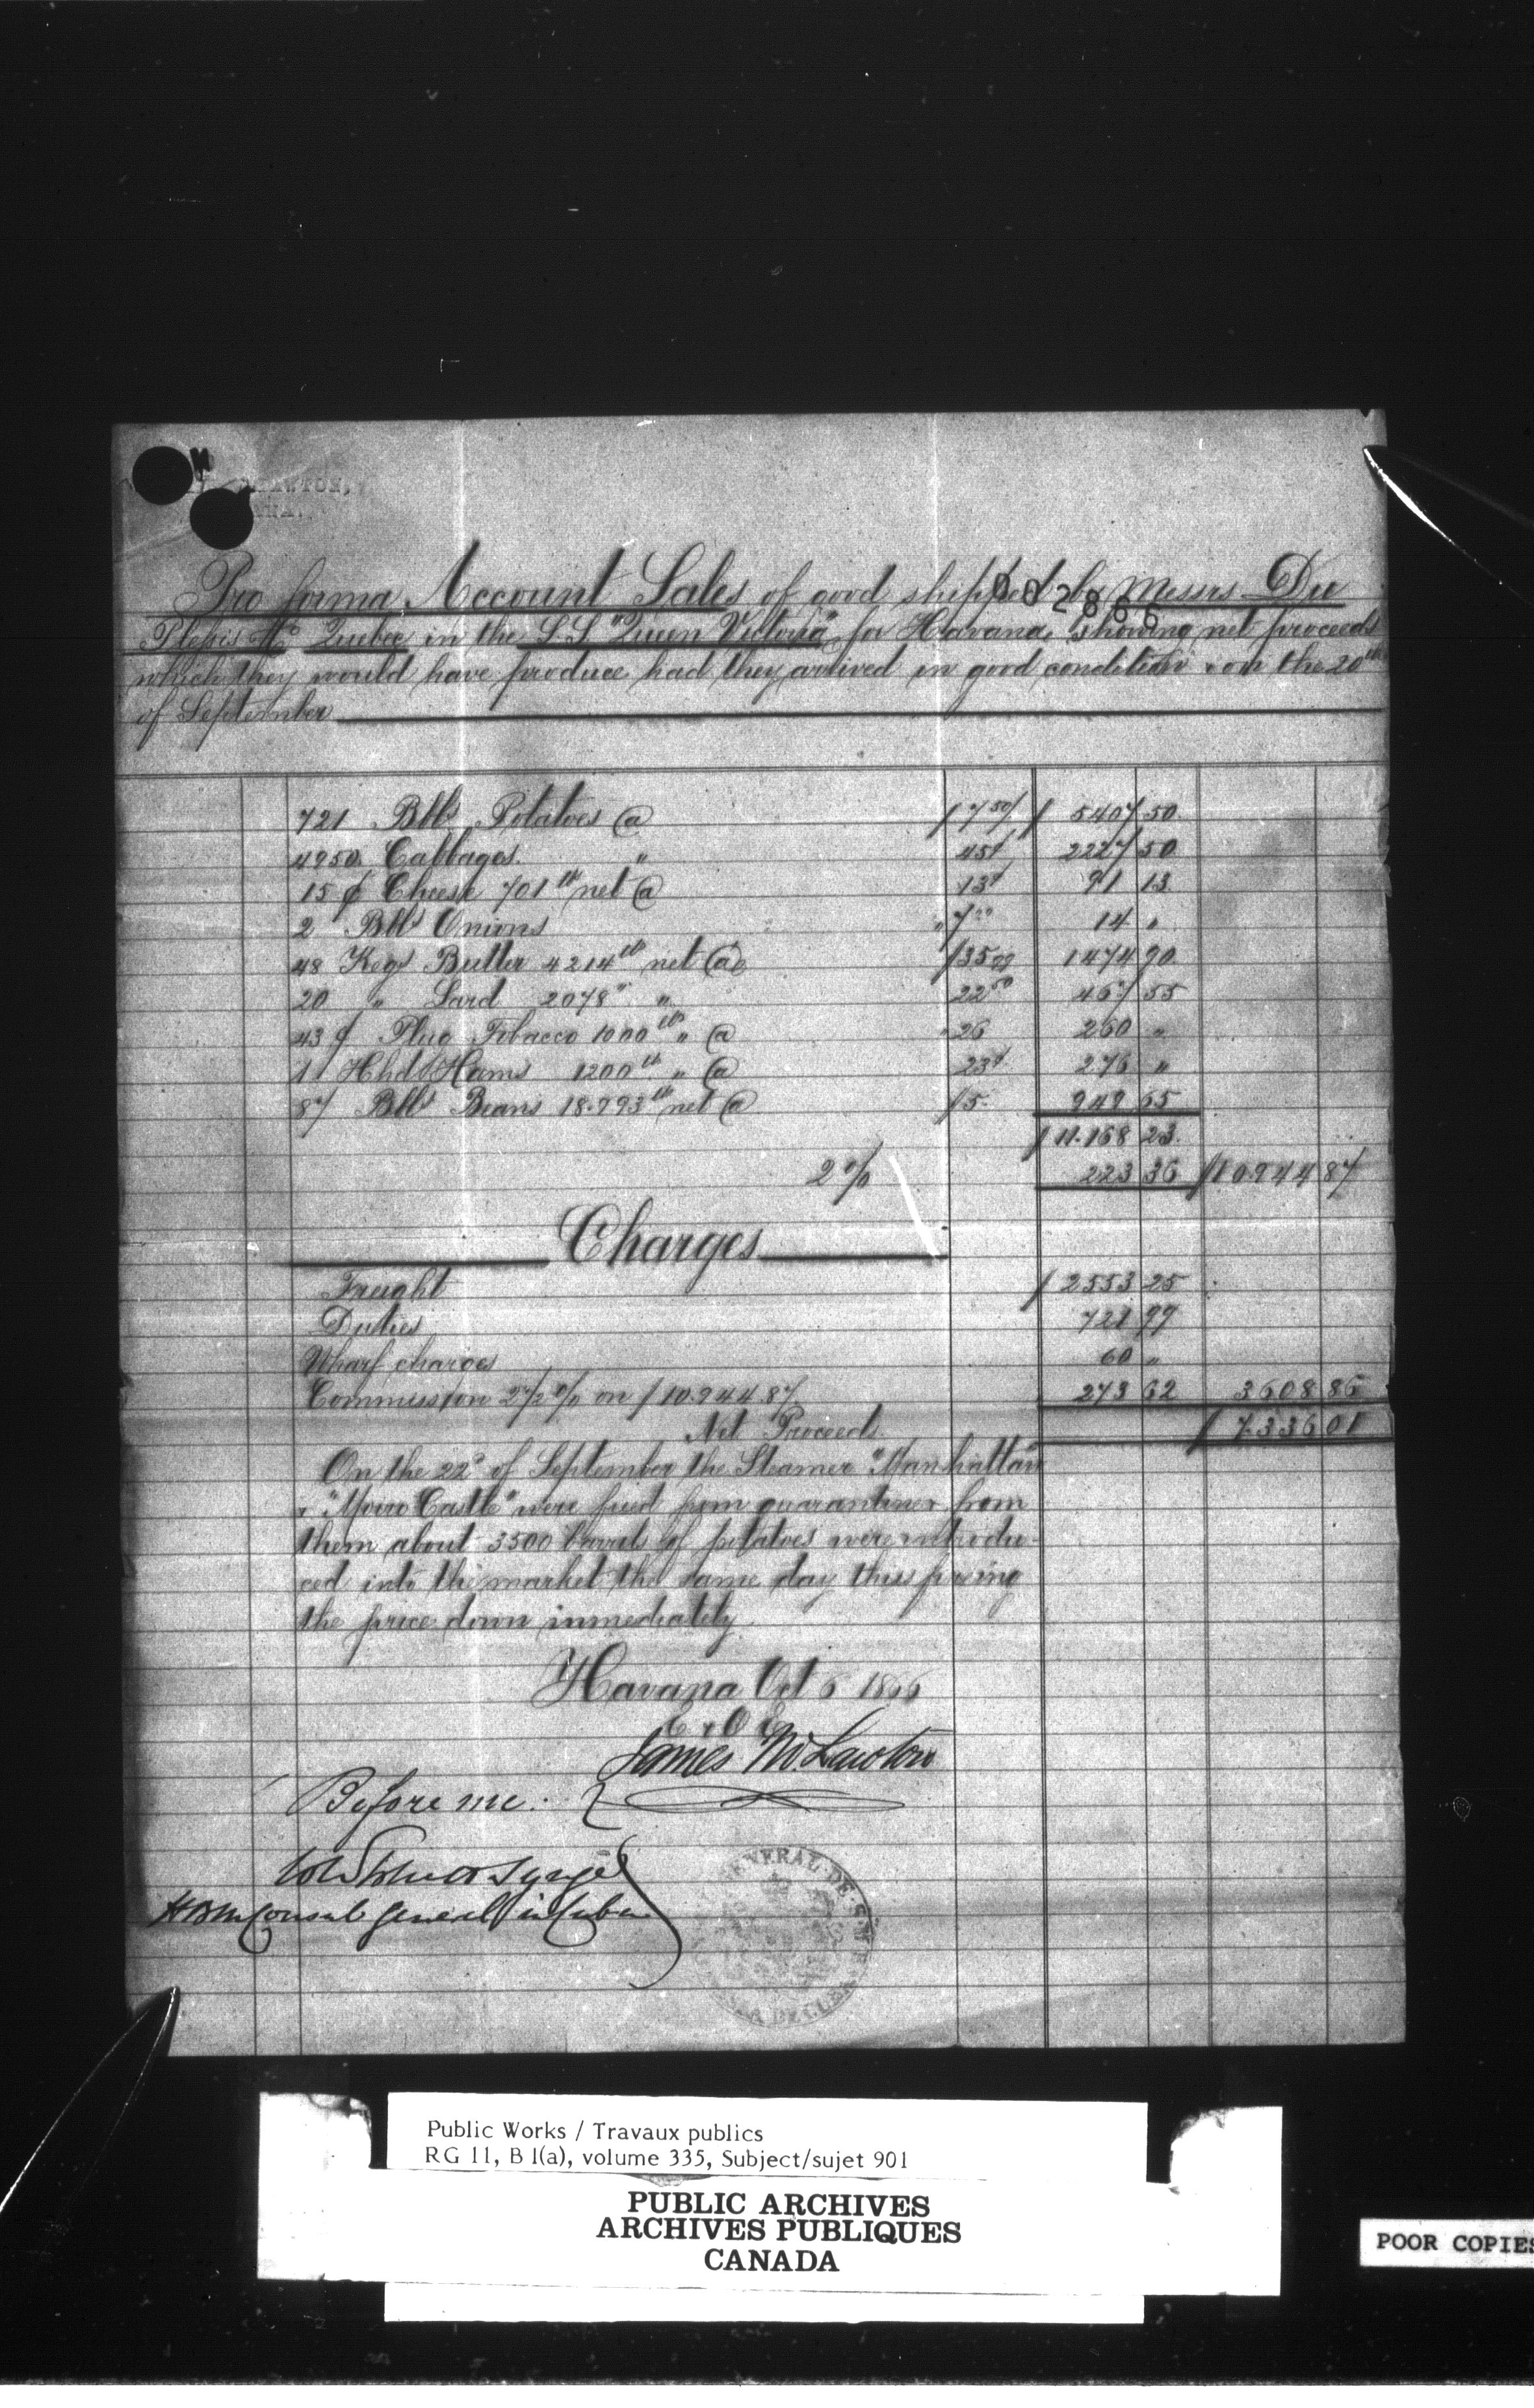 LAWTON,
Pro forma Account Sales of good shipped by Messrs Du
002866
Plessis & Co Quebec in the S.S. "Queen Victoria" for Havana, showing net proceeds
which they would have produce had they arrived in good condition & on the 20th
of September
721 Bbls Potatoes @ $7 50/ $ 5407 50
4950 Cabbages " 45¢ 2227 50
15 ¢ Cheese 701 lb net @ 13¢ 91 13
2 Bbls Onions " 7 00 14 "
48 Kegs Butter 4214 lb net @ $35 00 1474 90
20 " Lard 2078 " " 22 50 467 55
43 ¢ Plug Tobacco 1000 lb " @ "26 260 "
1 Hhd Hams 1200 lb " @ 23¢ 276 "
87 Bbls Beans 18.993 lb net @ $5 949 65
$ 11.168 23
2 % 223 36 $10.944 87
Charges
Freight $ 2553 25
Duties 721 99
Wharf charges 60 "
Commission 2 1/2 % on $ 10.944.87 273 62 3608 86
Net Proceeds $ 7.336 01
On the 22d of September the Steamer "Manhattan"
& "Morro Castle" were freed from quarantine & from
them about 3500 barrels of potatoes were introdu-
ced into the market the same day this forcing
the price down inmediately
Havana Oct 6 1866
E & O E
James M. Lawton
Before me:
HBM Consul General in Cuba
GENERAL DE S.M.B.
DE CUBA
Public Works / Travaux publics
RG 11, B 1(a), volume 335, Subject/sujet 901
PUBLIC ARCHIVES
ARCHIVES PUBLIQUES
CANADA
POOR COPIES